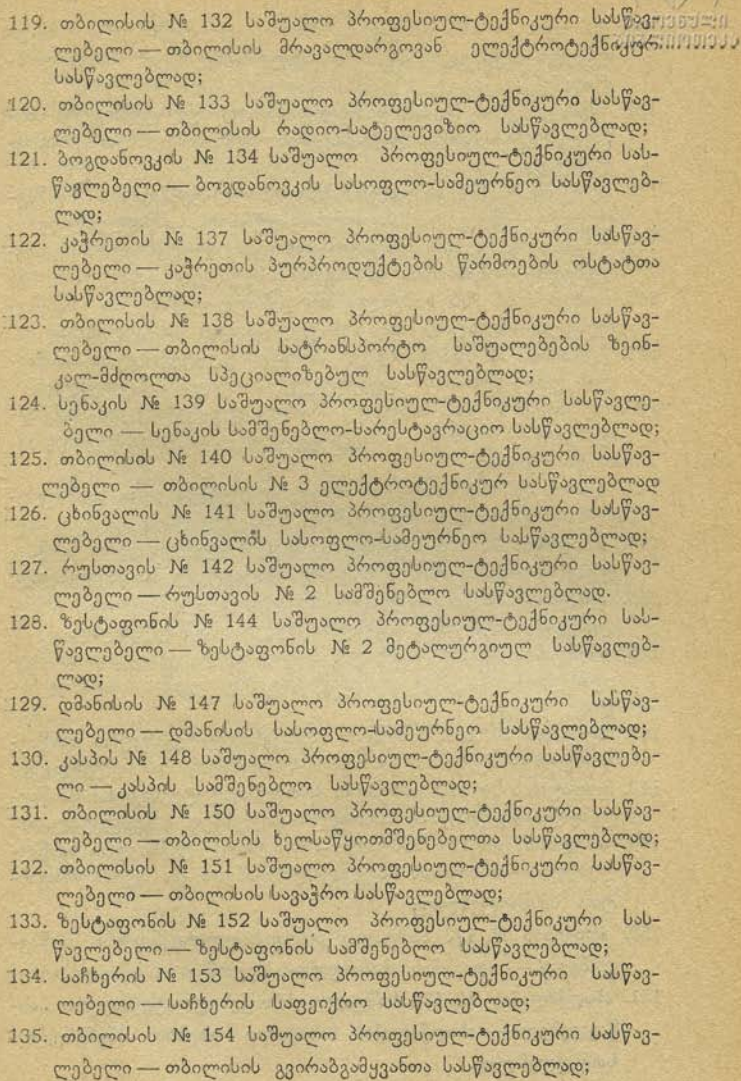 119. თბილისის № 132 საშუალო პროფესიულ-ტექნიკური სასწავ-
ლებელი — თბილისის მრავალდარგოვან ელექტროტექნიკურ
სასწავლებლად;
120. თბილისის № 133 საშუალო პროფესიულ-ტექნიკური სასწავ-
ლებელი — თბილისის რადიო-სატელევიზიო სასწავლებლად;
121. ბოგდანოვკის № 134 საშუალო პროფესიულ-ტექნიკური სას-
წავლებელი — ბოგდანოვკის სასოფლო-სამეურნეო სასწავლებ-
ლად;
122. კაჭრეთის № 137 საშუალო პროფესიულ-ტექნიკური სასწავ-
ლებელი — კაჭრეთის პურპროდუქტების წარმოების ოსტატთა
სასწავლებლად;
123. თბილისის № 138 საშუალო პროფესიულ-ტექნიკური სასწავ-
ლებელი — თბილისის სატრანსპორტო საშუალებების ზეინ-
კალ-მძღოლთა სპეციალიზებულ სასწავლებლად;
124. სენაკის № 139 საშუალო პროფესიულ-ტექნიკური სასწავლე-
ბელი — სენაკის სამშენებლო-სარესტავრაციო სასწავლებლად;
125. თბილისის № 140 საშუალო პროფესიულ-ტექნიკური სასწავ-
ლებელი — თბილისის № 3 ელექტროტექნიკურ სასწავლებლად
126. ცხინვალის № 141 საშუალო პროფესიულ-ტექნიკური სასწავ-
ლებელი — ცხინვალის სასოფლო-სამეურნეო სასწავლებლად;
127. რუსთავის № 142 საშუალო პროფესიულ-ტექნიკური სასწავ-
ლებელი — რუსთავის № 2 სამშენებლო სასწავლებლად.
128. ზესტაფონის № 144 საშუალო პროფესიულ-ტექნიკური სას-
წავლებელი — ზესტაფონის № 2 მეტალურგიულ სასწავლებ-
ლად;
129. დმანისის № 147 საშუალო პროფესიულ-ტექნიკური სასწავ-
ლებელი — დმანისის სასოფლო-სამეურნეო სასწავლებლად;
130. კასპის № 148 საშუალო პროფესიულ-ტექნიკური სასწავლებე-
ლი — კასპის სამშენებლო სასწავლებლად;
131. თბილისის № 150 საშუალო პროფესიულ-ტექნიკური სასწავ-
ლებელი — თბილისის ხელსაწყოთმშენებელთა სასწავლებლად;
132. თბილისის № 151 საშუალო პროფესიულ-ტექნიკური სასწავ-
ლებელი — თბილისის სავაჭრო სასწავლებლად;
133. ზესტაფონის № 152 საშუალო პროფესიულ-ტექნიკური სას-
წავლებელი — ზესტაფონის სამშენებლო სასწავლებლად;
134. საჩხერის № 153 საშუალო პროფესიულ-ტექნიკური სასწავ-
ლებელი — საჩხერის საფეიქრო სასწავლებლად;
135. თბილისის № 154 საშუალო პროფესიულ-ტექნიკური სასწავ-
ლებელი — თბილისის გვირაბგამყვანთა სასწავლებლად;